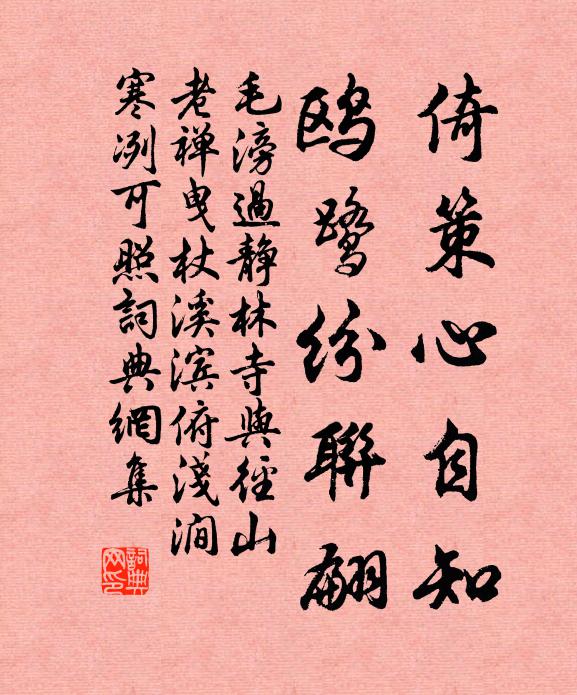 倚策心自知
鸥鹭纷聯翩
毛滂過静林寺與徑山
老禅曳杖溪滨俯淺涧
寒冽可照詞典網集
詞典网印